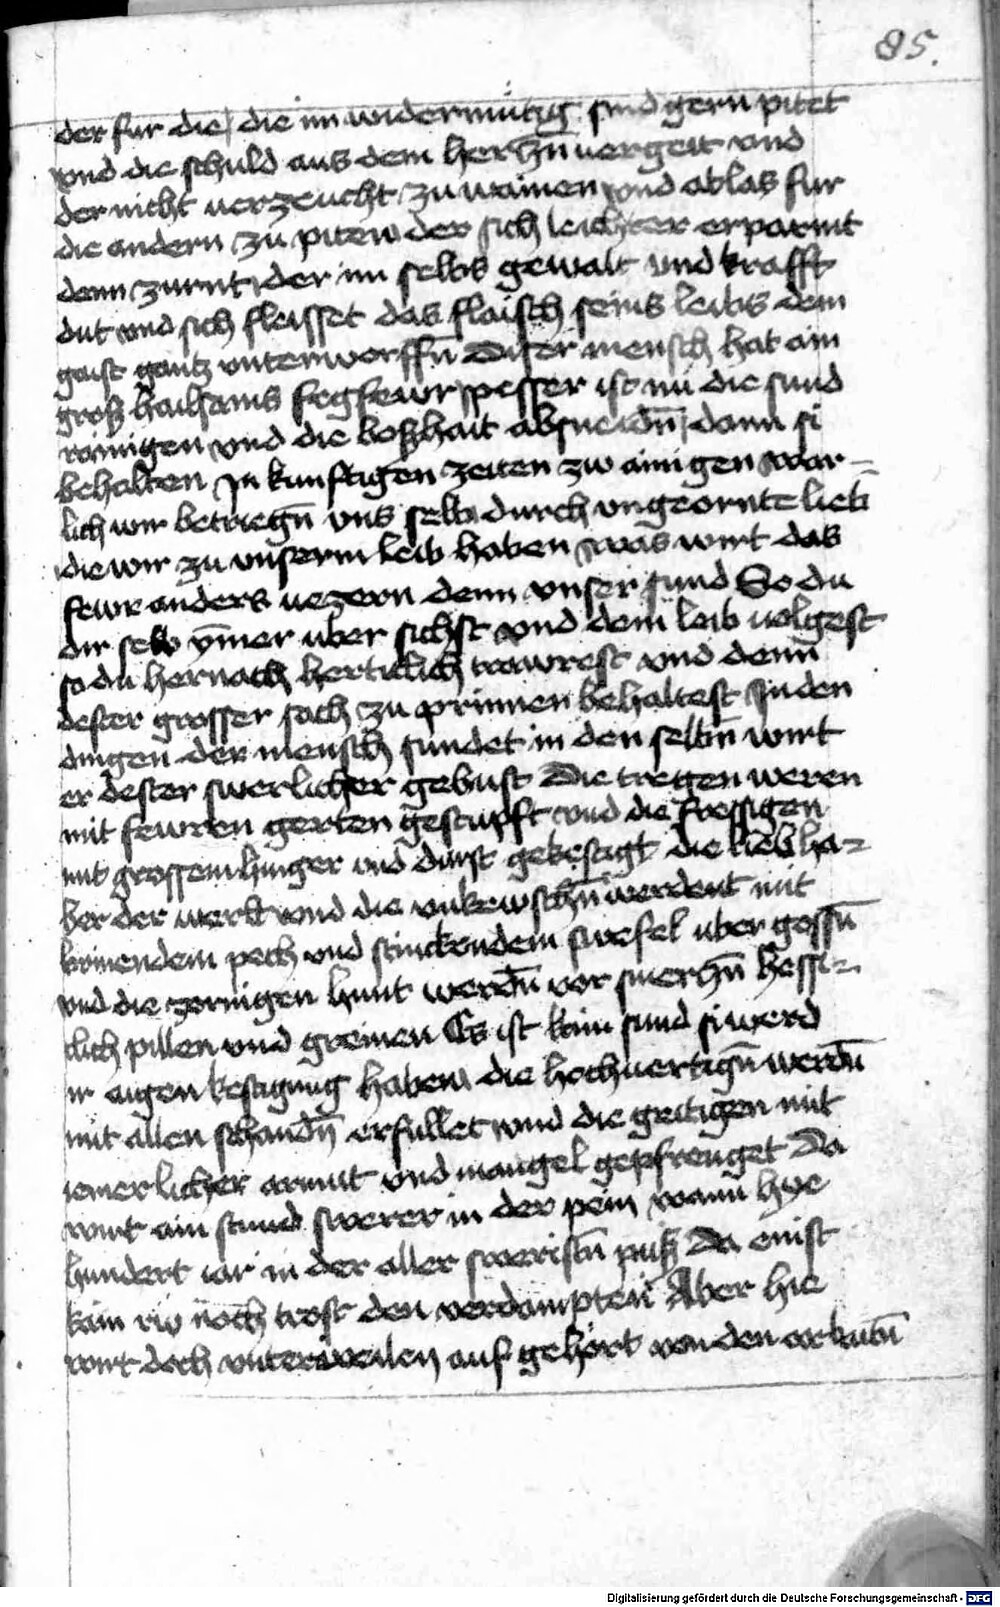 85.
der fur die die im widermutig sind gern pitet
vnd die schuld aus dem herczn̄ uergeit vnd
der nicht uerzeucht zu wainen vnd ablas fur
die andern zu piten der sich leichter erparmt
denn zurnt der im selbs gewalt vnd krafft
dut vnd sich fleisset das flaisch seins leibs dem
gaist gantz vnterworffn̄ Diser mensch hat ain
groß hailsams fegfewr pesser ist nu die sund
rainigen vnd die boßhait absneidn̄ dann si
behalten In kunftigen zeiten zw ainigen war-
lich wir betriegn̄ vns selb durch vngeornte lieb
die wir zu vnserm leib haben was wirt das
fewr anders uezern denn vnser sund So du
dir selb ym̄er uber sichst vnd dem leib uolgest
so du hernach herticlich trawrest vnd denn
dester grosser sach zu prinnen behaltest In den
dingen der mensch sundet in den selbn̄ wirt
er dester swerlicher gebust Die tregen weren
mit fewren gerten gestupft vnd die fressigen
mit grossem hunger vnd durst gekestigt die lieb ha-
ber der werlt vnd die vnkewschn̄ werdent mit
brinendem pech vnd stinckendem swefel uber gossn̄
vnd die zornigen hunt werdn̄ vor smerczn̄ hessi-
clich pillen vnd greinen Es ist kain sund si werd
ir aigen kestigung haben die hochuertign̄ werdn̄
mit allen schandn̄ erfullet vnd die geitigen mit
iemerlicher armut vnd mangel gepfrenget Da
wirt ain stund swerer in der pein wann hye
hundert iar in der aller sweristn̄ puß Da enist
kain rw noch trost den verdampten Aber hie
wirt doch vnterweilen auf gehort von den arbaitn̄
Digitalisierung gefördert durch die Deutsche Forschungsgemeinschaft - DFG